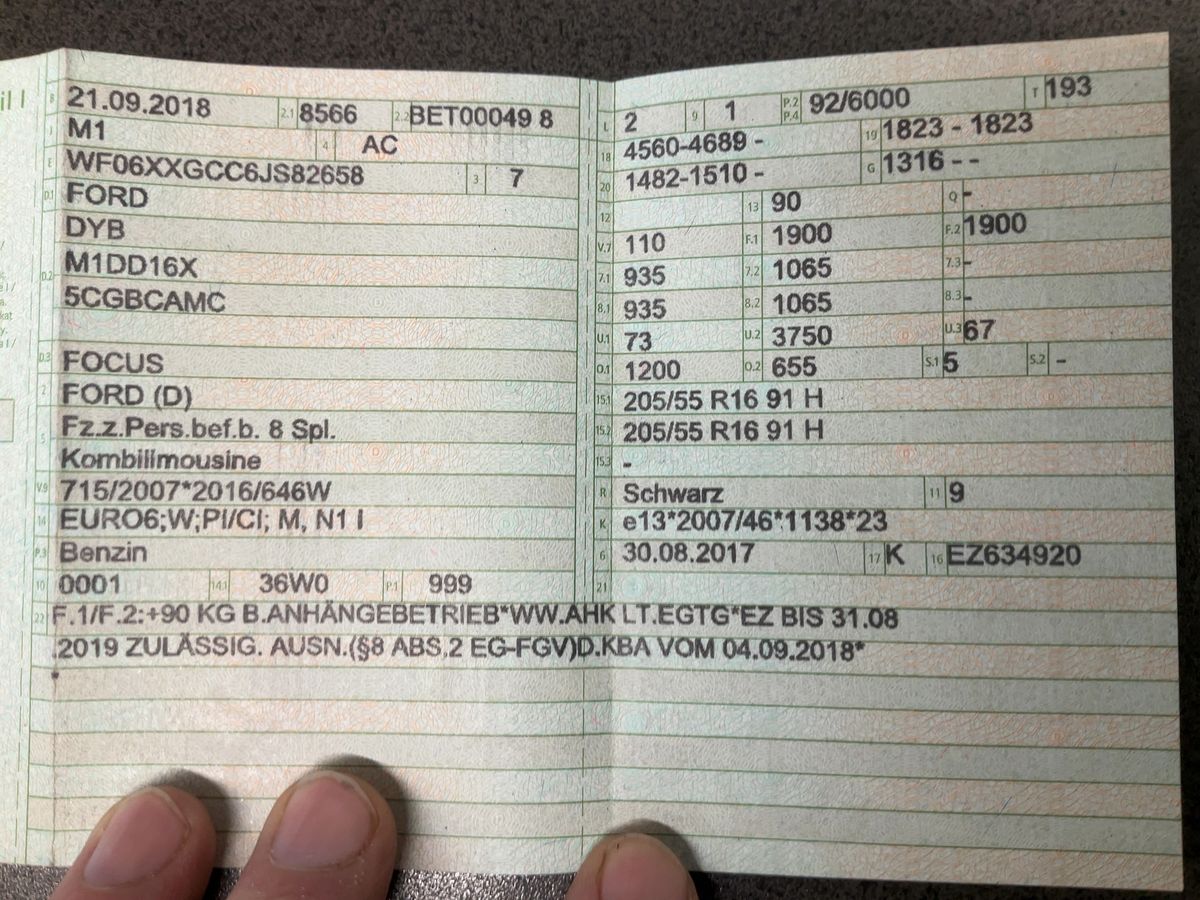 il I
B 21.09.2018 2.1 8566 2.2 BET00049 8
J M1 4 AC
E WF06XXGCC6JS82658 3 7
D.1 FORD
DYB
D.2 M1DD16X
5CGBCAMC
D.3 FOCUS
2 FORD (D)
5 Fz.z.Pers.bef.b. 8 Spl.
Kombilimousine
V.9 715/2007*2016/646W
14 EURO6;W;PI/CI; M, N1 I
P.3 Benzin
10 0001 14.1 36W0 P.1 999
L 2 9 1 P.2 P.4 92/6000 T 193
18 4560-4689 - 19 1823 - 1823
20 1482-1510 - G 1316 - -
12 13 90 Q -
V.7 110 F.1 1900 F.2 1900
7.1 935 7.2 1065 7.3 -
8.1 935 8.2 1065 8.3 -
U.1 73 U.2 3750 U.3 67
O.1 1200 O.2 655 S.1 5 S.2 -
15.1 205/55 R16 91 H
15.2 205/55 R16 91 H
15.3 -
R Schwarz 11 9
K e13*2007/46*1138*23
6 30.08.2017 17 K 16 EZ634920
21
22 F.1/F.2:+90 KG B.ANHÄNGEBETRIEB*WW.AHK LT.EGTG*EZ BIS 31.08
.2019 ZULÄSSIG. AUSN.(§8 ABS.2 EG-FGV)D.KBA VOM 04.09.2018*
*